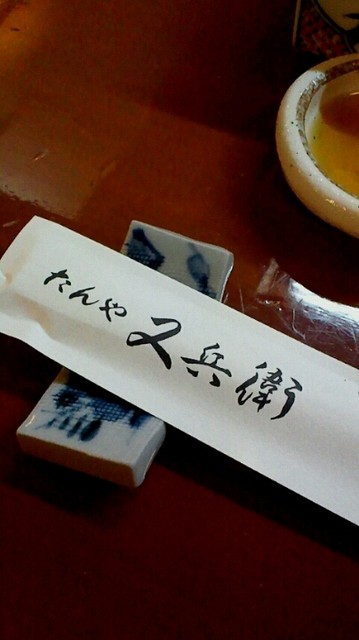 たんや 又兵衛